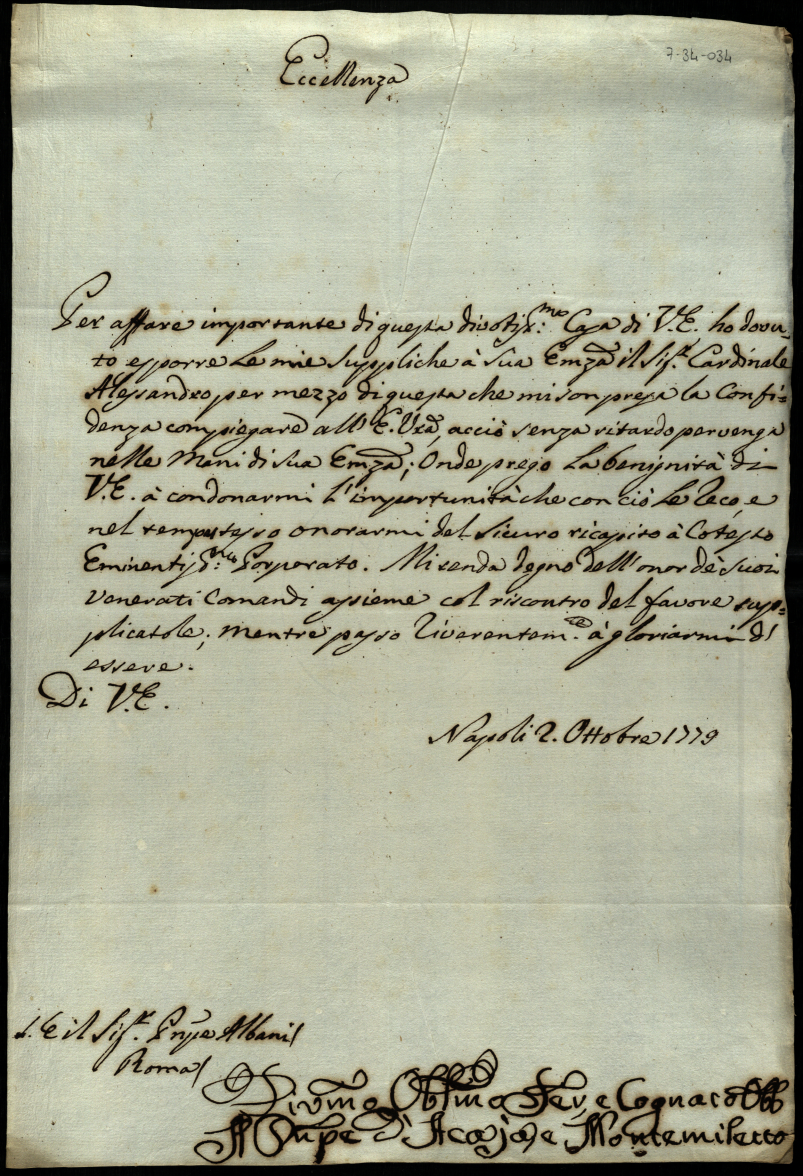 7-34-034
Eccellenza
Per affare importante di questa divotiss:mo Casa di V.E. ho dovu-
to esporre le mie suppliche à Sua Emza il Sig.r Cardinale
Alessandro per mezzo di questa che mi son presa la Confi=
denza compiegare all'E. Vra, acciò senza ritardo pervenga
nelle Mani di Sua Emza; Onde prego la benignità di
V.E. à condonarmi l'importunità che con ciò le reco, e
nel tempo stesso onorarmi del sicuro ricapito à Cotesto
Eminentiss:mo Porporato. Mi renda degno dell'onor de suoi
venerati Comandi assieme col riscontro del favore sup=
plicatole; mentre passo riverentem.te à gloriarmi di
essere.
Di V.E.
Napoli 2. Ottobre 1779
S. E il Sig.r Pnpe Albani/
Roma/
Divmo Obbmo Ser e Cognato Obb
Il Pnpe di Acaja, e Montemiletto